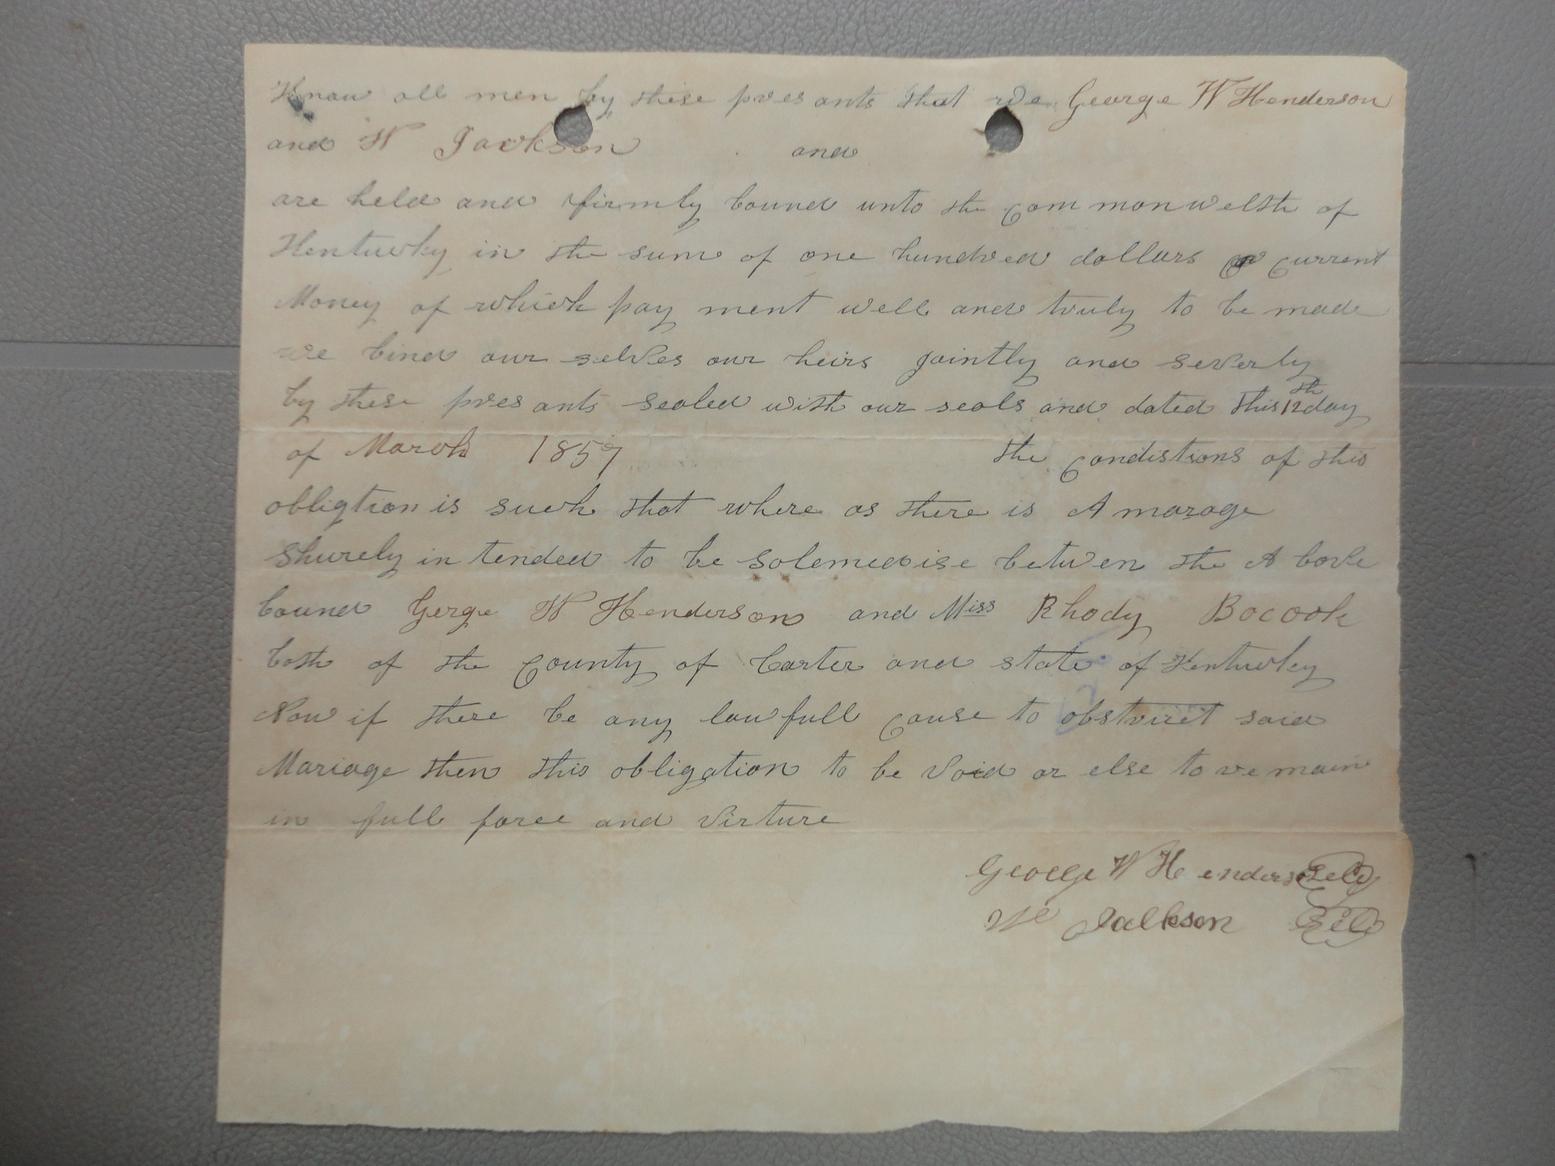 Know all men by these presants that We George W Henderson
and W Jackson and
are held and firmly bound unto the Common welth of
Kentucky in the sum of one hundred dollars current
Money of which pay ment well and truly to be made
we bind our selves our heirs jointly and severly
by these presants sealed with our seals and dated this 12th day
of March 1857 the condistions of this
obligtion is such that where as there is A marage
shurely in tended to be solemedise betwen the A bove
bound Gerge W Henderson and Miss Rhody Bocook
both of the County of Carter and state of Kentucky
Now if there be any lawfull cause to obstruct said
Mariage then this obligation to be void or else to remain
in full force and virture
George W Henderson
Jackson